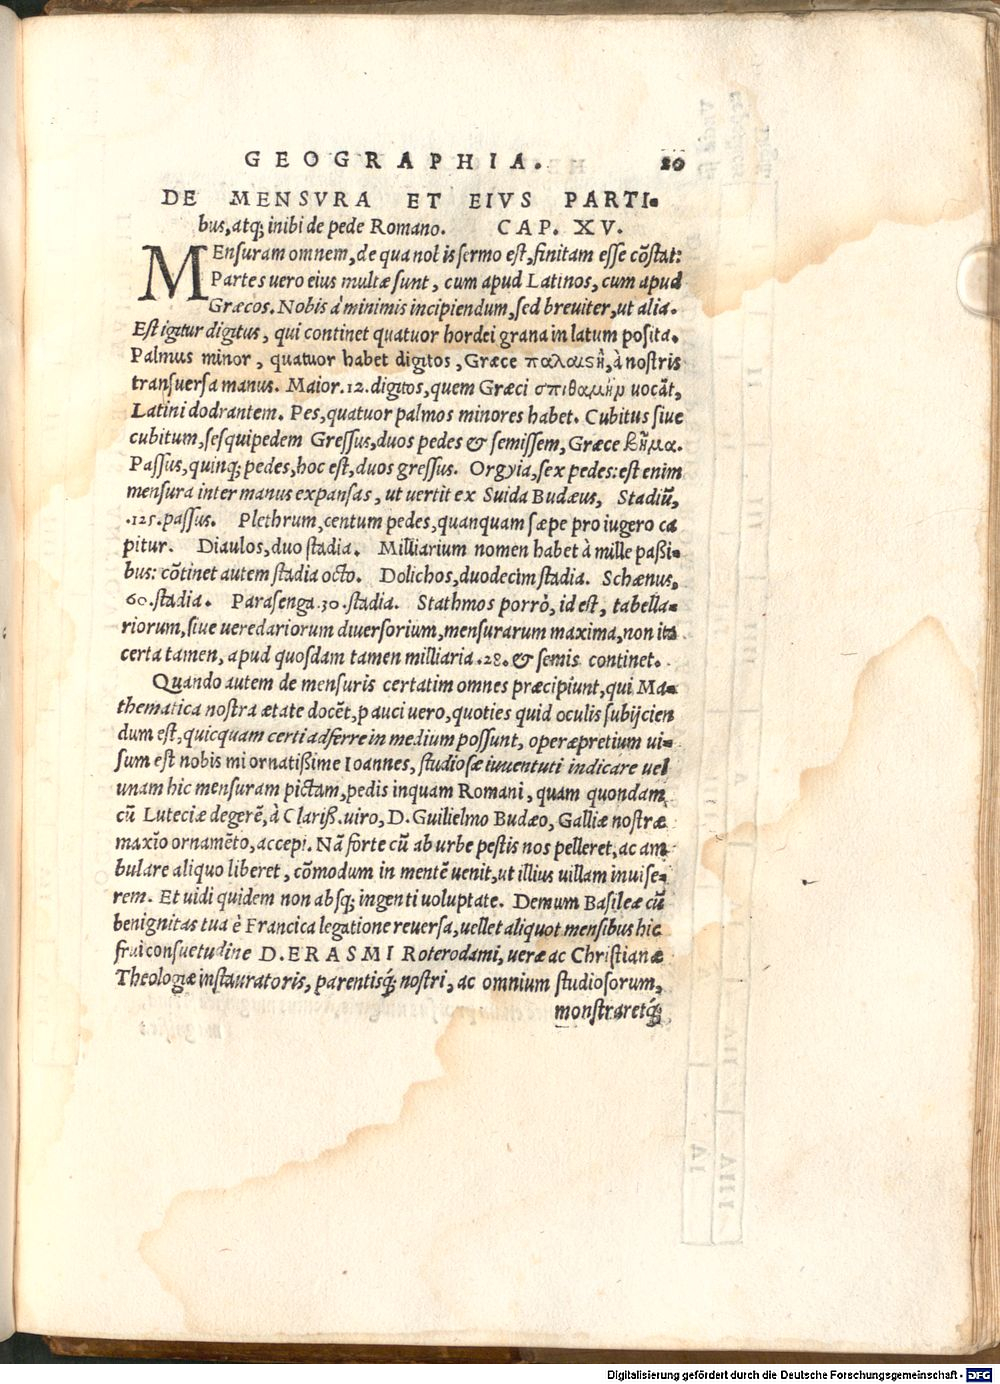 GEOGRAPHIA. 20
DE MENSVRA ET EIVS PARTI-
bus, atq; inibi de pede Romano. CAP. XV.
MEnsuram omnem, de qua nobis sermo est, finitam esse cōstat:
Partes uero eius multæ sunt, cum apud Latinos, cum apud
Græcos. Nobis à minimis incipiendum, sed breuiter, ut alia.
Est igitur digitus, qui continet quatuor hordei grana in latum posita.
Palmus minor, quatuor habet digitos, Græce παλαιςὴ, à nostris
transuersa manus. Maior .12. digitos, quem Græci σπιθαμὴν uocāt,
Latini dodrantem. Pes, quatuor palmos minores habet. Cubitus siue
cubitum, sesquipedem Gressus, duos pedes & semissem, Græce βῆμα.
Passus, quinq; pedes, hoc est, duos gressus. Orgyia, sex pedes: est enim
mensura inter manus expansas, ut uertit ex Suida Budæus, Stadiū,
.125. passus. Plethrum, centum pedes, quanquam sæpe pro iugero ca
pitur. Diaulos, duo stadia. Milliarium nomen habet à mille paßi-
bus: cōtinet autem stadia octo. Dolichos, duodecim stadia. Schænus,
60. stadia. Parasenga .30. stadia. Stathmos porrò, id est, tabella-
riorum, siue ueredariorum diuersorium, mensurarum maxima, non ita
certa tamen, apud quosdam tamen milliaria .28. & semis continet.
Quando autem de mensuris certatim omnes præcipiunt, qui Ma-
thematica nostra ætate docēt, pauci uero, quoties quid oculis subijcien
dum est, quicquam certi adferre in medium possunt, operæpretium ui-
sum est nobis mi ornatißime Ioannes, studiosæ iuuentuti indicare uel
unam hic mensuram pictam, pedis inquam Romani, quam quondam
cū Luteciæ degerē, à Clariß. uiro, D. Guilielmo Budæo, Galliæ nostræ
maxīo ornamēto, accepi. Nā forte cū ab urbe pestis nos pelleret, ac am
bulare aliquo liberet, cōmodum in mentē uenit, ut illius uillam inuise-
rem. Et uidi quidem non absq; ingenti uoluptate. Demum Basileæ cū
benignitas tua è Francica legatione reuersa, uellet aliquot mensibus hic
frui consuetudine D. ERASMI Roterodami, ueræ ac Christianæ
Theologiæ instauratoris, parentisq́; nostri, ac omnium studiosorum,
monstraretq́;
Digitalisierung gefördert durch die Deutsche Forschungsgemeinschaft - DFG